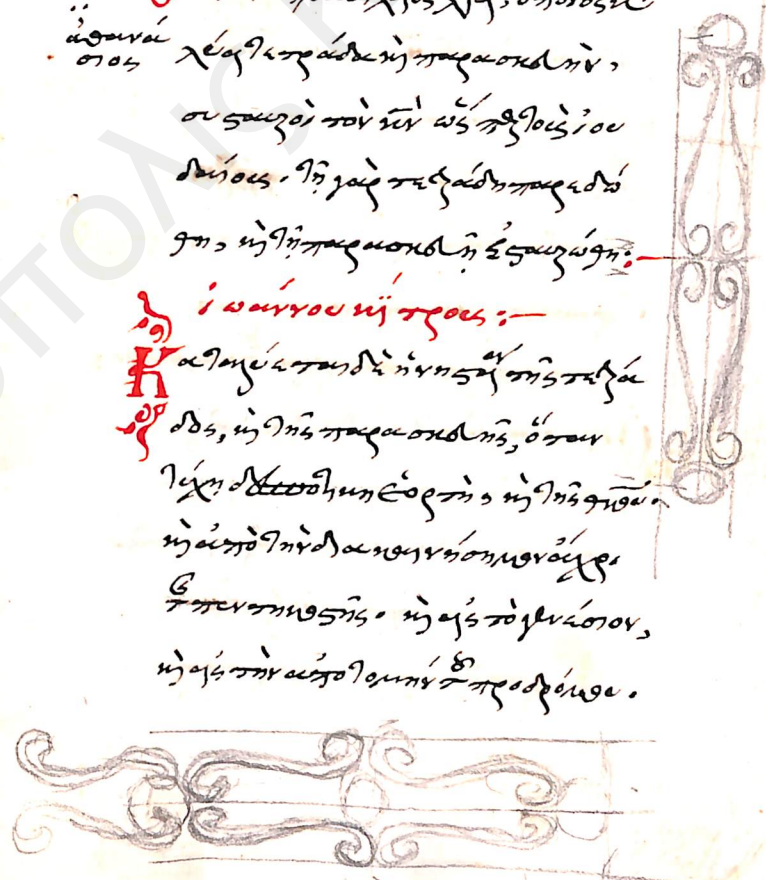 ἀθανά
σιος
λύει τετράδα καὶ παρασκευὴν,
συσταυροῖ τὸν κν̅ τοῖς ἰου
δαίοις. τῇ γὰρ τετράδη παρεδώ
θη, καὶ τῇ παρασκευῇ ἐσταυρώθη:
ἰωάννου κίτρους:
Καταλύεται δὲ ἡ νηστεία τῆς τετρά
δος, καὶ τῆς παρασκευῆς, ὅταν
τύχῃ δεσποτικὴ ἑορτὴ, καὶ τῆς
καὶ ἀπὸ τὴν διακαινήσιμον ἄχρι
τῆς πεντηκοστῆς. καὶ εἰς τὸ γενέσιον,
καὶ εἰς τὴν ἀποτομὴν τοῦ προδρόμου.